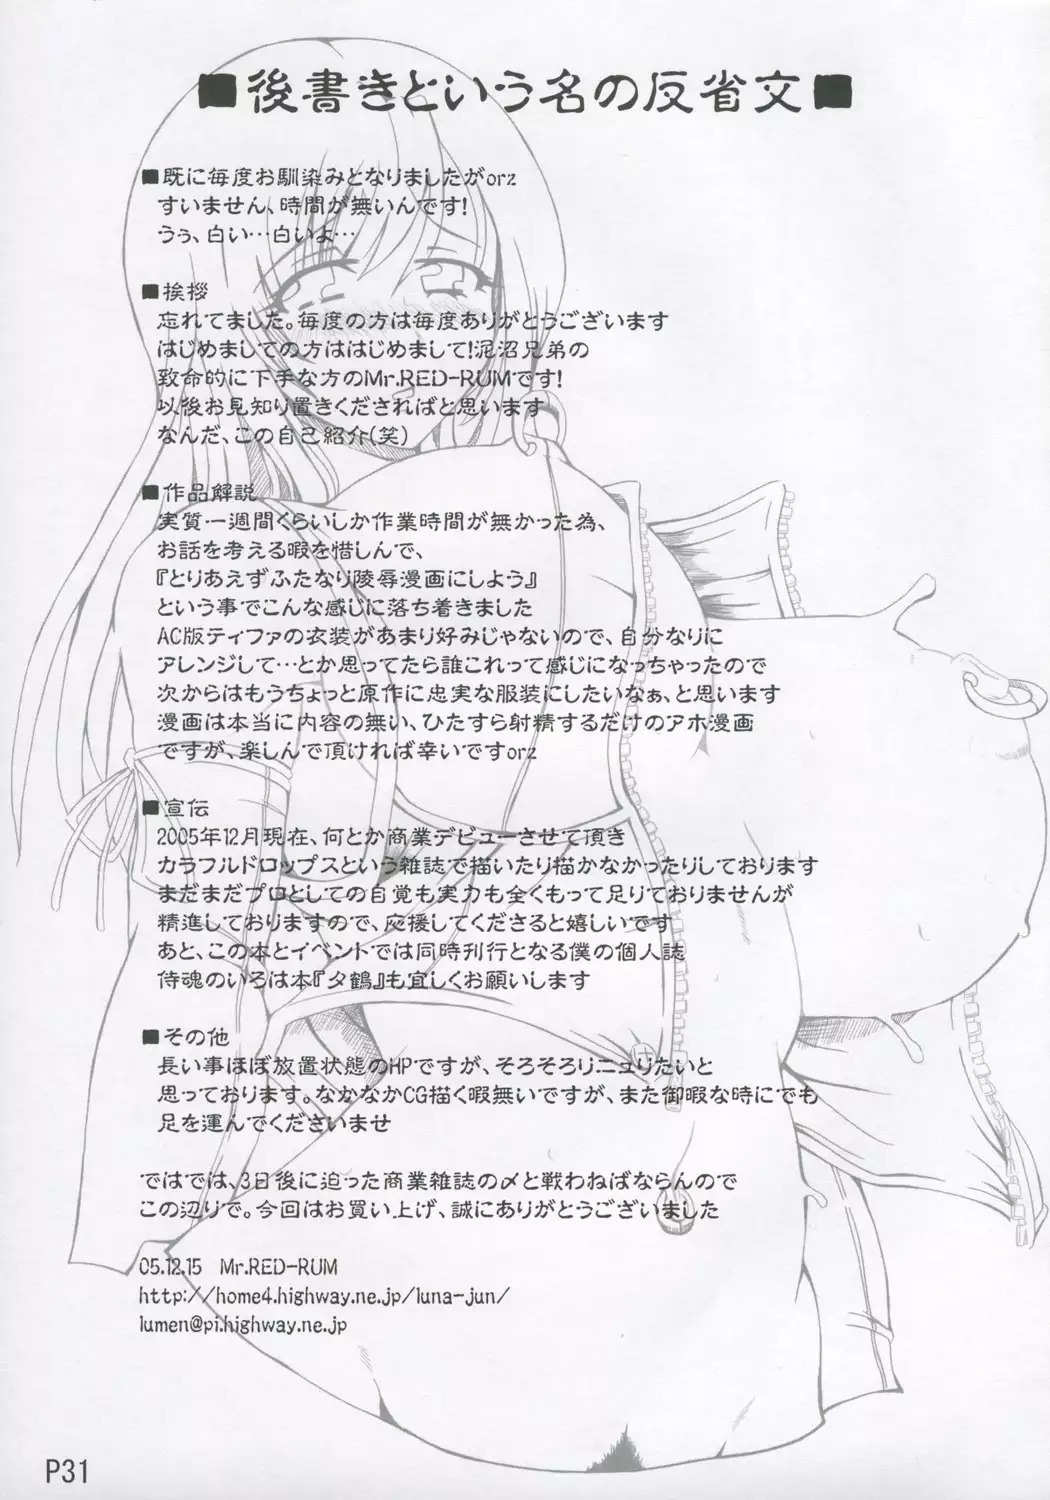 ■後書きという名の反省文■
■既に毎度お馴染みとなりましたがorz
すいません、時間が無いんです!
うぅ、白い…白いよ…
■挨拶
忘れてました。毎度の方は毎度ありがとうございます
はじめましての方ははじめまして!泥沼兄弟の
致命的に下手な方のMr.RED-RUMです!
以後お見知り置きくださればと思います
なんだ、この自己紹介(笑)
■作品解説
実質一週間くらいしか作業時間が無かった為、
お話を考える暇を惜しんで、
『とりあえずふたなり陵辱漫画にしよう』
という事でこんな感じに落ち着きました
AC版ティファの衣装があまり好みじゃないので、自分なりに
アレンジして…とか思ってたら誰これって感じになっちゃったので
次からはもうちょっと原作に忠実な服装にしたいなぁ、と思います
漫画は本当に内容の無い、ひたすら射精するだけのアホ漫画
ですが、楽しんで頂ければ幸いですorz
■宣伝
2005年12月現在、何とか商業デビューさせて頂き
カラフルドロップスという雑誌で描いたり描かなかったりしております
まだまだプロとしての自覚も実力も全くもって足りておりませんが
精進しておりますので、応援してくださると嬉しいです
あと、この本とイベントでは同時刊行となる僕の個人誌
侍魂のいろは本『夕鶴』も宜しくお願いします
■その他
長い事ほぼ放置状態のHPですが、そろそろリニュりたいと
思っております。なかなかCG描く暇無いですが、また御暇な時にでも
足を運んでくださいませ
ではでは、3日後に迫った商業雑誌の〆と戦わねばならんので
この辺りで。今回はお買い上げ、誠にありがとうございました
05.12.15 Mr.RED-RUM
http://home4.highway.ne.jp/luna-jun/
lumen@pi.highway.ne.jp
P31